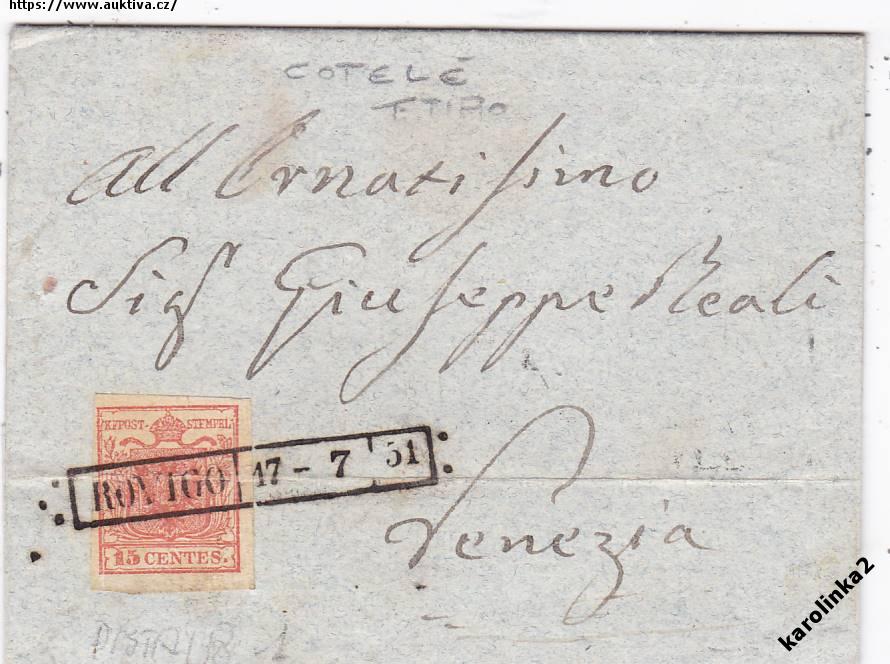 https://www.auktiva.cz/
COTELÉ
All Ornatissimo
Sigr Giuseppe Reali
K.K.POST-STEMPEL
ROVIGO 17 - 7 51
15 CENTES.
Venezia
karolinka2